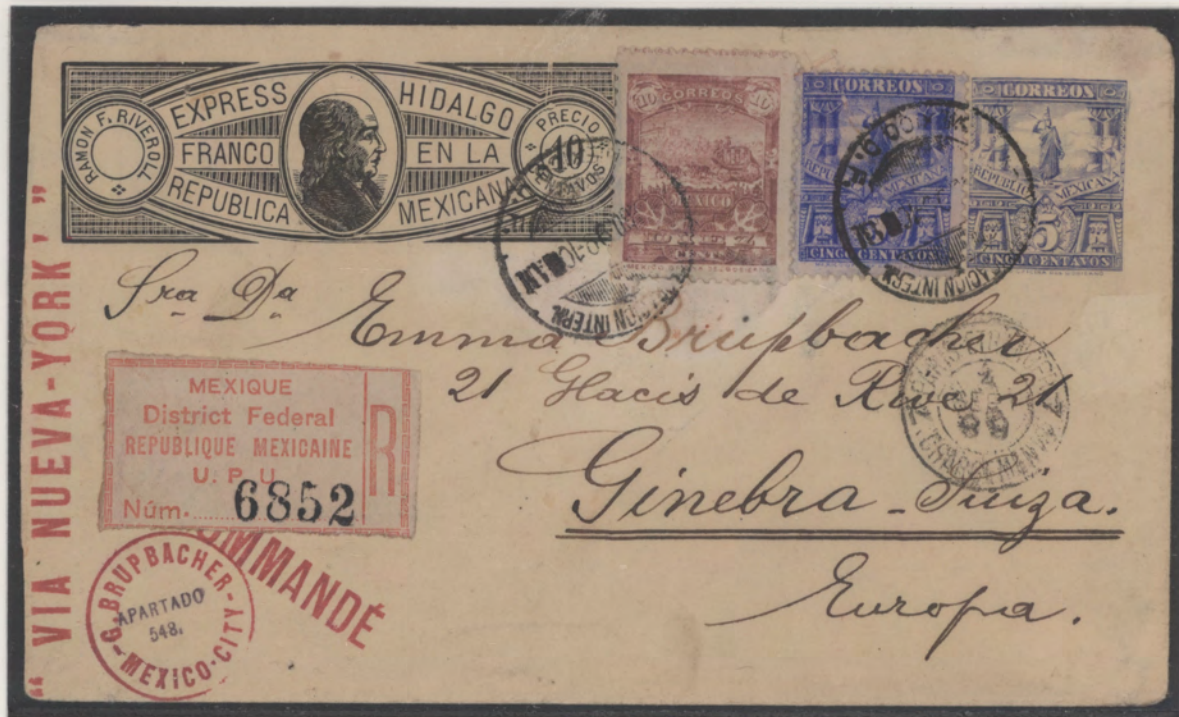 RAMON F. RIVEROLL
EXPRESS HIDALGO
FRANCO EN LA
REPUBLICA MEXICANA
PRECIO
10
CENTAVOS
CORREOS
MEXICO
CENTS
CORREOS
REPUBLICA MEXICANA
CINCO CENTAVOS
CORREOS
REPUBLICA MEXICANA
5
CINCO CENTAVOS
INTERN.
Sra. Da. Emma Brüpbacher
21 Glacis de Rive 21
Ginebra - Suiza.
Europa.
"VIA NUEVA-YORK,"
MEXIQUE
District Federal
REPUBLIQUE MEXICAINE
U. P. U.
Núm. 6852
R
OMMANDÉ
G. BRUPBACHER-
APARTADO
548.
MEXICO-CITY